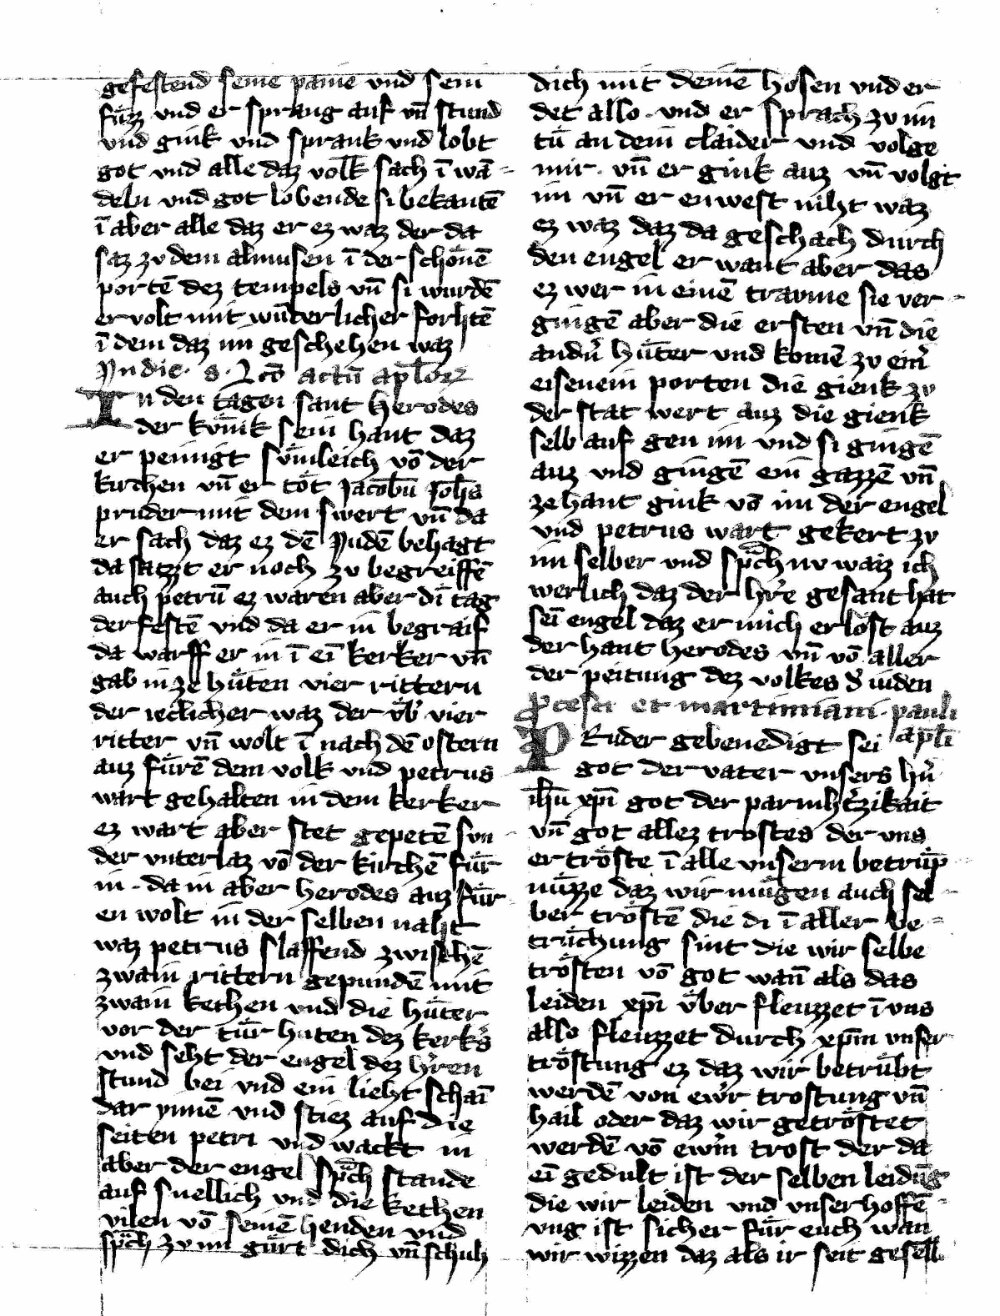 gefestend seine painē vnd sein
fu̇zz vnd er sprang auf vn̄ stund
vnd gink vnd sprank vnd lobt
got vnd alle daz volk sach ī wā-
deln vnd got lobende si bekantē
ī aber alle daz er ez waz der da
saz zv dem almusen ī der schönē
portē dez tempels vn̄ si wurdē
ervolt mit wu̇nterlicher forhtē
ī dem daz im geschehen waz
Jn die · s · Lc̄o actū apl̄oꝝ
In den tagen sant herodes
der kv̇nik sein hant daz
er peinigt sv̇mleich vō der
kirchen vn̄ er tȯt Jacobū Joh̄s
pruder mit dem swert vn̄ da
er sach daz ez dē Judē behagt
da satzt er noch zv begreiffē
auch petrū ez waren aber di tag
der festē vnd da er in begraif
da warff er in ī eī kerker vn̄
gab in ze hu̇ten vier rittern
der ieclicher waz der vb̓ vier
ritter vn̄ wolt ī nach dē ostern
auz fu̇rē dem volk vnd petrus
wart gehalten in dem kerker
ez wart aber stet gepetē svn
der vnterlaz vō der kirchē fu̇r
in · da in aber herodes auz fu̇r-
en wolt in der selben naht
waz petrus slaffend zwischē
zwain rittern gepundē mit
zwain kethen vnd die hu̇ter
vor der tu̇r huten dez kerk̓s
vnd seht der engel dez h̓ren
stund bei vnd ein lieht schaī
dar ynnē vnd stiez auf die
seiten petri vnd wackt in
aber der engel sp̄ch stande
auf snellich vnd die kethen
vilen vō seinē henden vnd
sp̄ch zv im gu̇rt dich vn̄ schuh
dich mit deinē hosen vnd er
det also · vnd er sprach zv im
tu̇ an dein claider vnd volge
mir · vn̄ er gink auz vn̄ volgt
im vn̄ er enwest niht waz
ez waz daz da geschach durch
den engel er want aber das
ez wer in einē travme sie ver-
gingē aber die ersten vn̄ die
andn̓ hu̇ter vnd komē zv eim̓
eisenein porten die gienk zv
der stat wert auz die gienk
selb auf gen im vnd si gingē
auz vnd gingē ein gazzē vn̄
zehant gink vō im der engel
vnd petrus wart gekert zv
im selber vnd sp̄ch nv waiz ich
werlich daz der h̓re gesant hat
seī engel daz er mich erlȯst auz
der hant herodes vn̄ vō aller
der peitung dez volkes d̓ iuden
ꝓcessi et martiniani · pauli
apl̄i
PRuder gebenedigt sei
got der vater vnsers hn̓
ih̄u xp̄i got der parmh̓tzikait
vn̄ got allez trostes der vns
ertrȯste ī alle vnserm betru̇p
nu̇zze daz wir mu̇gen auch sel-
ber trȯstē die di ī aller be-
tru̇chung sint die wir selbe
trȯsten vō got wan̄ als das
leiden xp̄i v̇ber fleuzzet ī vns
also fleuzzet durch xp̄m vnser
trȯstung ez daz wir betru̇bt
werdē von ew̓r trostung vn̄
hail oder daz wir getrȯstet
werdē vō ewrm̓ trost der da
eī gedult ist der selben leidūg
die wir leiden vnd vnser hoffē-
ung ist sicher fu̇r euch wan
wir wizzen daz als ir seit gesell̄